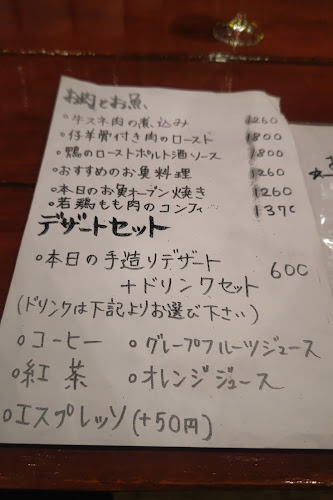 お肉とお魚
○牛スネ肉の煮込み 1260
○仔羊骨付き肉のロースト 1800
○鴨のローストポルト酒ソース 1800
○おすすめのお魚料理 1260
○本日のお魚オーブン焼き 1260
○若鶏もも肉のコンフィ 137
デザートセット
○本日の手造りデザート
+ドリンクセット 600
(ドリンクは下記よりお選び下さい)
○コーヒー ○グレープフルーツジュース
○紅茶 ○オレンジジュース
○エスプレッソ(+50円)